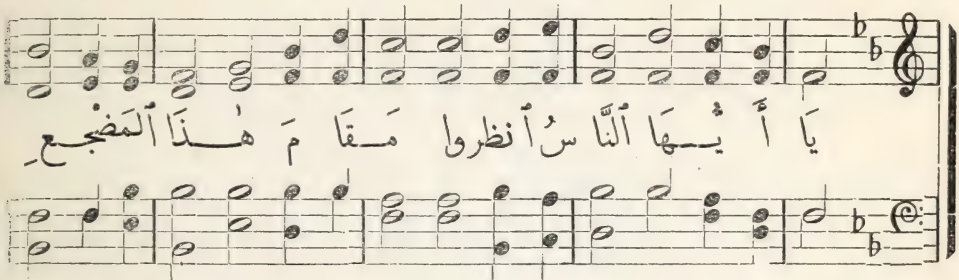 يَا أَ يُّــهَا ٱلنَّا سُ ٱنظروا مَــقَا مَ هٰــذَا ٱلمَضْجَــعِ